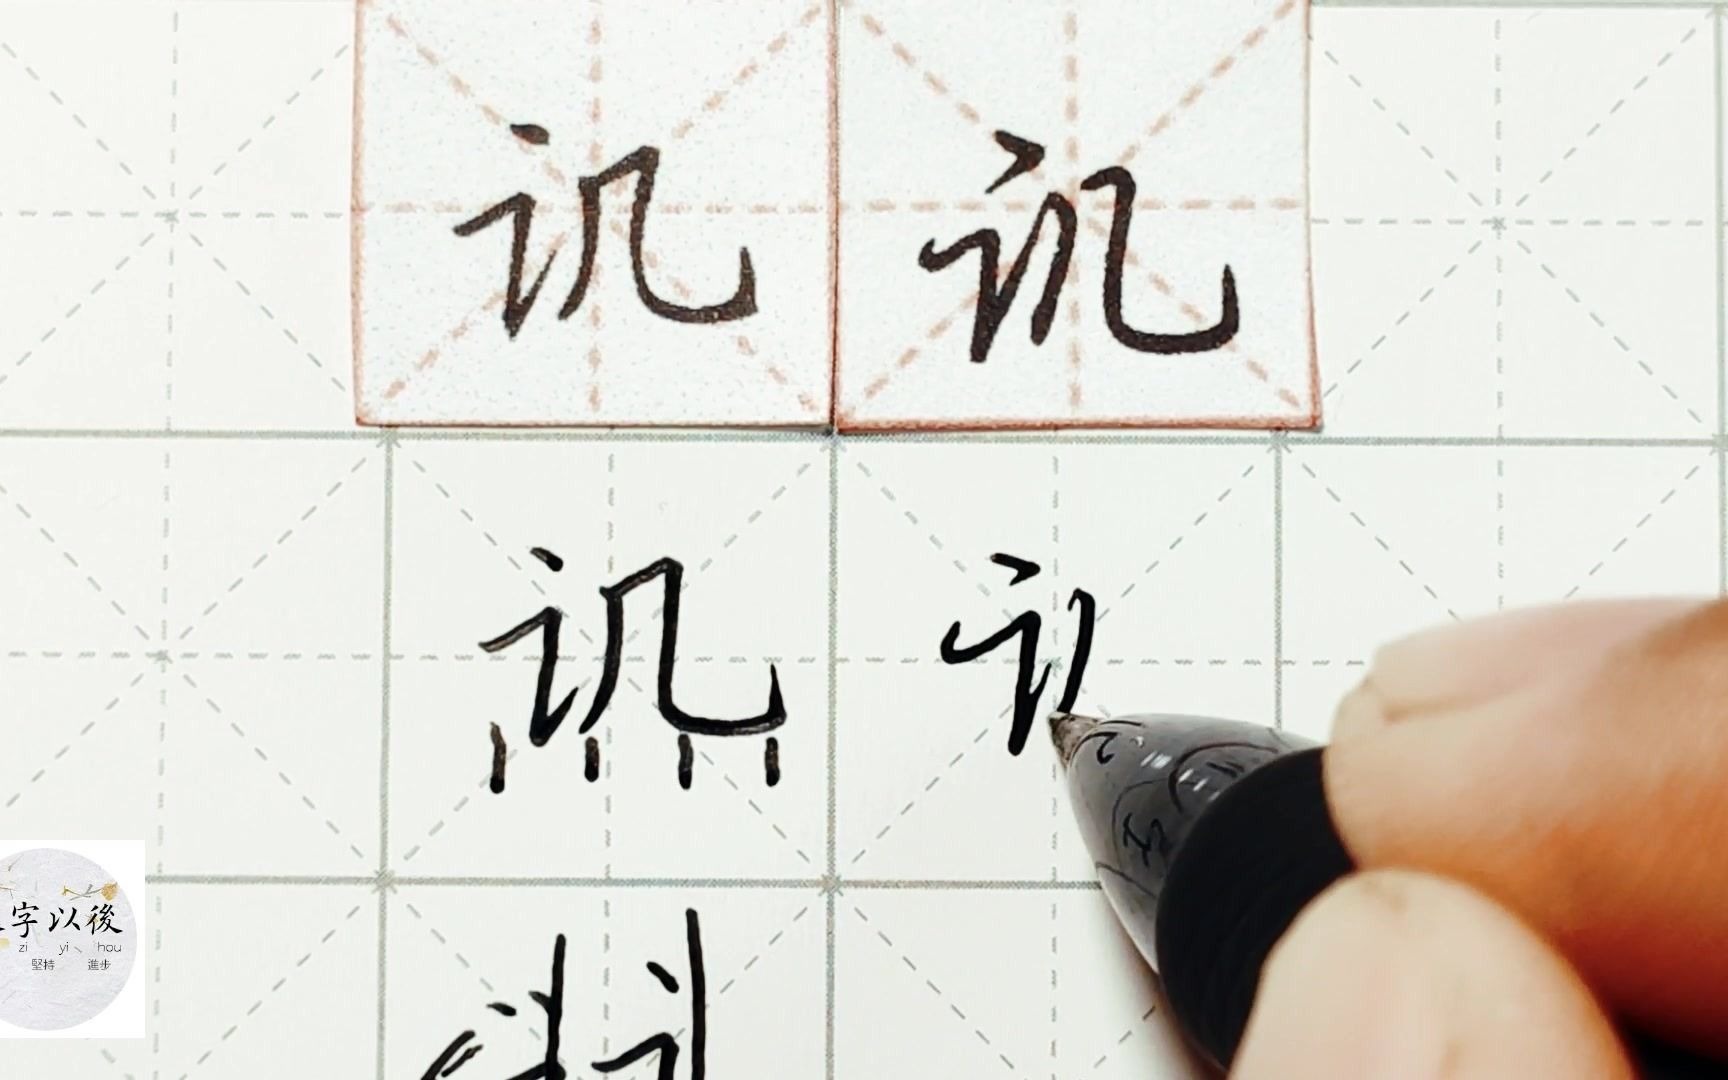 讥 讥
讥 讠
字以後
zi yi hou
堅持 進步